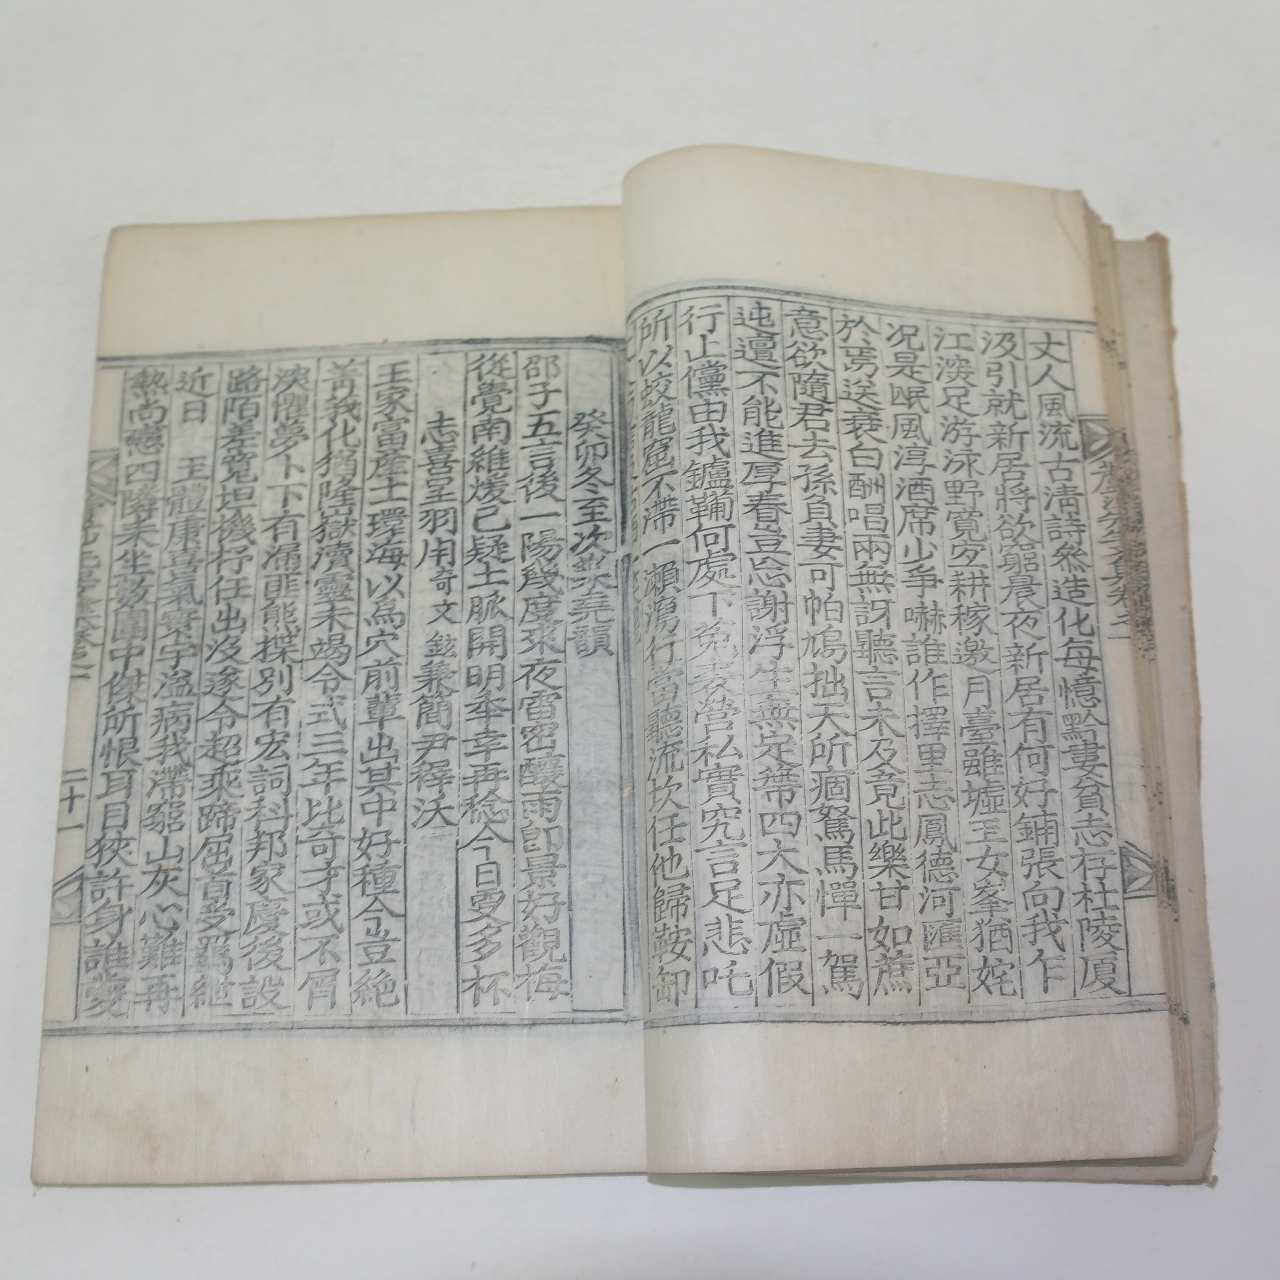 丈人風流古淸詩叅造化每憶黔婁貧志存杜陵厦
汲引就新居將欲窮晨夜新居有何好鋪張向我乍
江淡足游泳野寬宜耕稼邀月臺雖墟玉女峯猶姹
况是民風淳酒席少爭嚇誰作擇里志鳳德河滙亞
於焉送衰白酬唱兩無訝聽言未及竟此樂甘如蔗
意欲隨君去孫負妻可帕鳩拙天所痼駑馬憚一駕
迍邅不能進厚眷豈忘謝浮生無定帶四大亦虛假
行止儻由我鑪鞴何處下兔裘營私實究言足悲吒
所以蛟龍窟不滯一瀨瀉行當聽流坎任他歸鞍卸
癸卯冬至次堯韻
邵子五言後一陽幾度來夜雷密釀雨卽景好觀梅
從覺南維煖已疑土脈開明牟幸再稔今日更多杯
志喜呈羽用奇文鉉兼簡尹穉沃
王家富産士環海以爲穴前輩出其中好種今豈絶
菁莪化猶隆嶽瀆靈未竭令式三年比奇才或不屑
淡懼夢卜下有涌匪能揲別有宏詞科邦家慶後設
路陌差寬坦機杼任出沒遂令超乘蹄屈首受羈紲
近日 王體康喜氣寰宇溢病我滯窮山灰心難再
熱尚戀四隣未坐數圍中傑所恨耳目狹許身誰夔
二十一